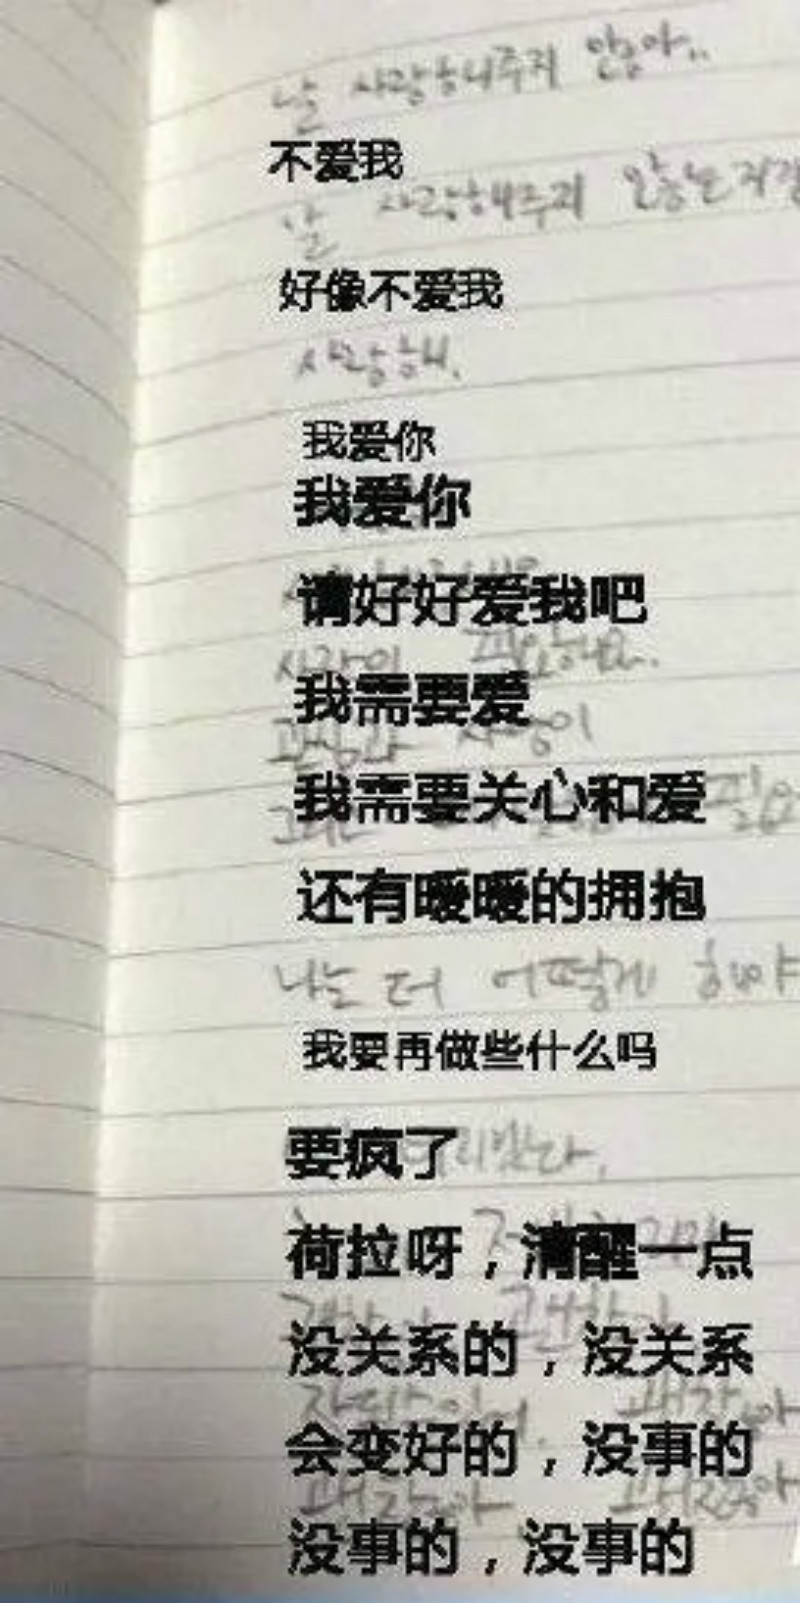 날 사랑해주지 않아..
不爱我
날 사랑해주지 않는거 같
好像不爱我
사랑해.
我爱你
我爱你
请好好爱我吧
사랑이 필요해요.
我需要爱
관심과 사랑이
我需要关心和爱
还有暖暖的拥抱
나는 더 어떻게 해야
我要再做些什么吗
要疯了
荷拉呀，清醒一点
没关系的，没关系
会变好的，没事的
괜찮아 괜찮아
没事的，没事的